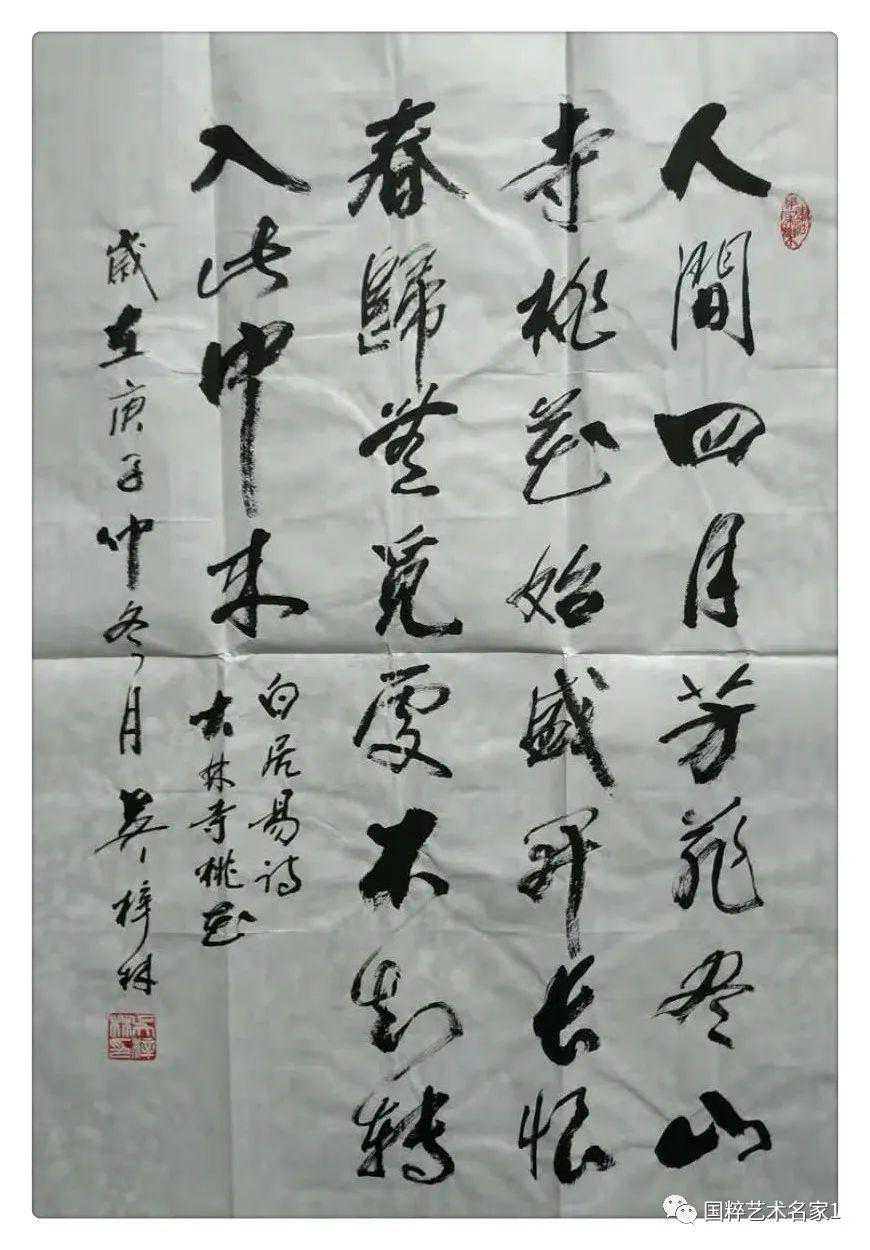 人間四月芳菲尽山
寺桃花始盛开长恨
春歸無覓處不知轉
入此中来
白居易诗
大林寺桃花
歲在庚子仲冬月吴梓林
国粹艺术名家1